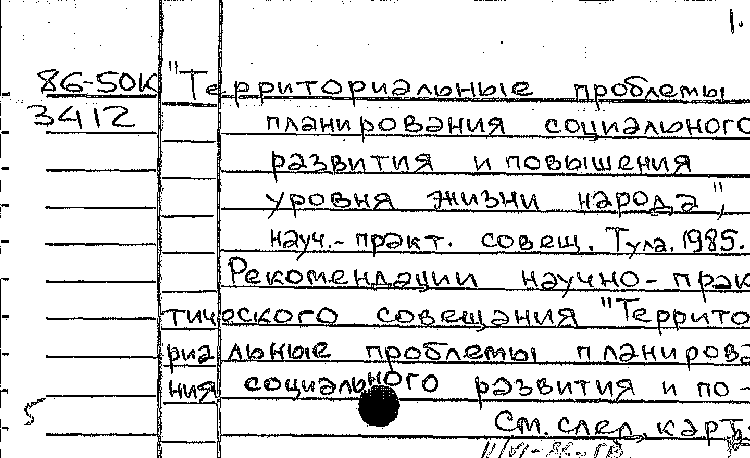 1.
86-50К "Территориальные проблемы
3412 планирования социального
развития и повышения
уровня жизни народа",
науч.-практ. совещ. Тула. 1985.
Рекомендации научно-прак
тического совещания "Террито
риальные проблемы планирова
ния социального развития и по-
См. след. карт.